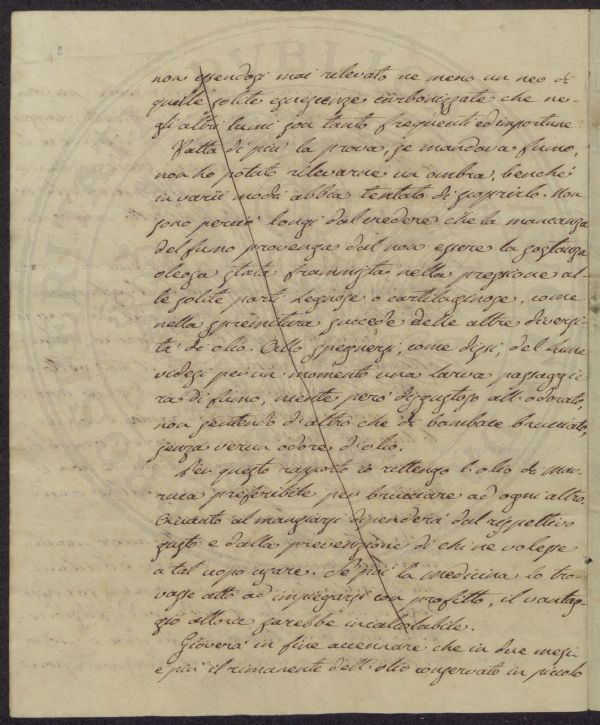 non essendosi mai rilevato ne meno un neo di
quelle solite escrescenze carbonizzate che ne-
gli altri lumi son tanto frequenti ed importune.
Fatta di più la prova, se mandava fumo,
non ho potuto rilevarne un ombra, benchè
in varii modi abbia tentato di scoprirlo. Non
sono perciò lungi dal credere che la mancanza
del fumo provenga dal non essere la sostanza
oleosa stata frammista nella pressione al-
le solite parti legnose o cartilaginose, come
nella spremitura succede delle altre diversi-
tà di olio. Allo spegnersi, come dissi, del lume
videsi per un momento una larva passaggie
ra di fumo, niente però disgustoso all'odorato,
non sentendo d'altro che di bambace bruciato,
senza verun odore d'olio.
Per questo rapporto io rittengo l'olio di
preferibile per bruciare ad ogni altro.
Quanto al mangiarsi dipenderà dal rispettivo
gusto e dalla prevenzione di chi ne volesse
a tal uopo usare. Se poi la medicina lo tro-
vasse atto ad impiegarsi con profitto, il vantag-
gio allora sarebbe incalcolabile.
Gioverà in fine accennare che in due mesi
e più il rimanente dell'olio conservato in piccolo